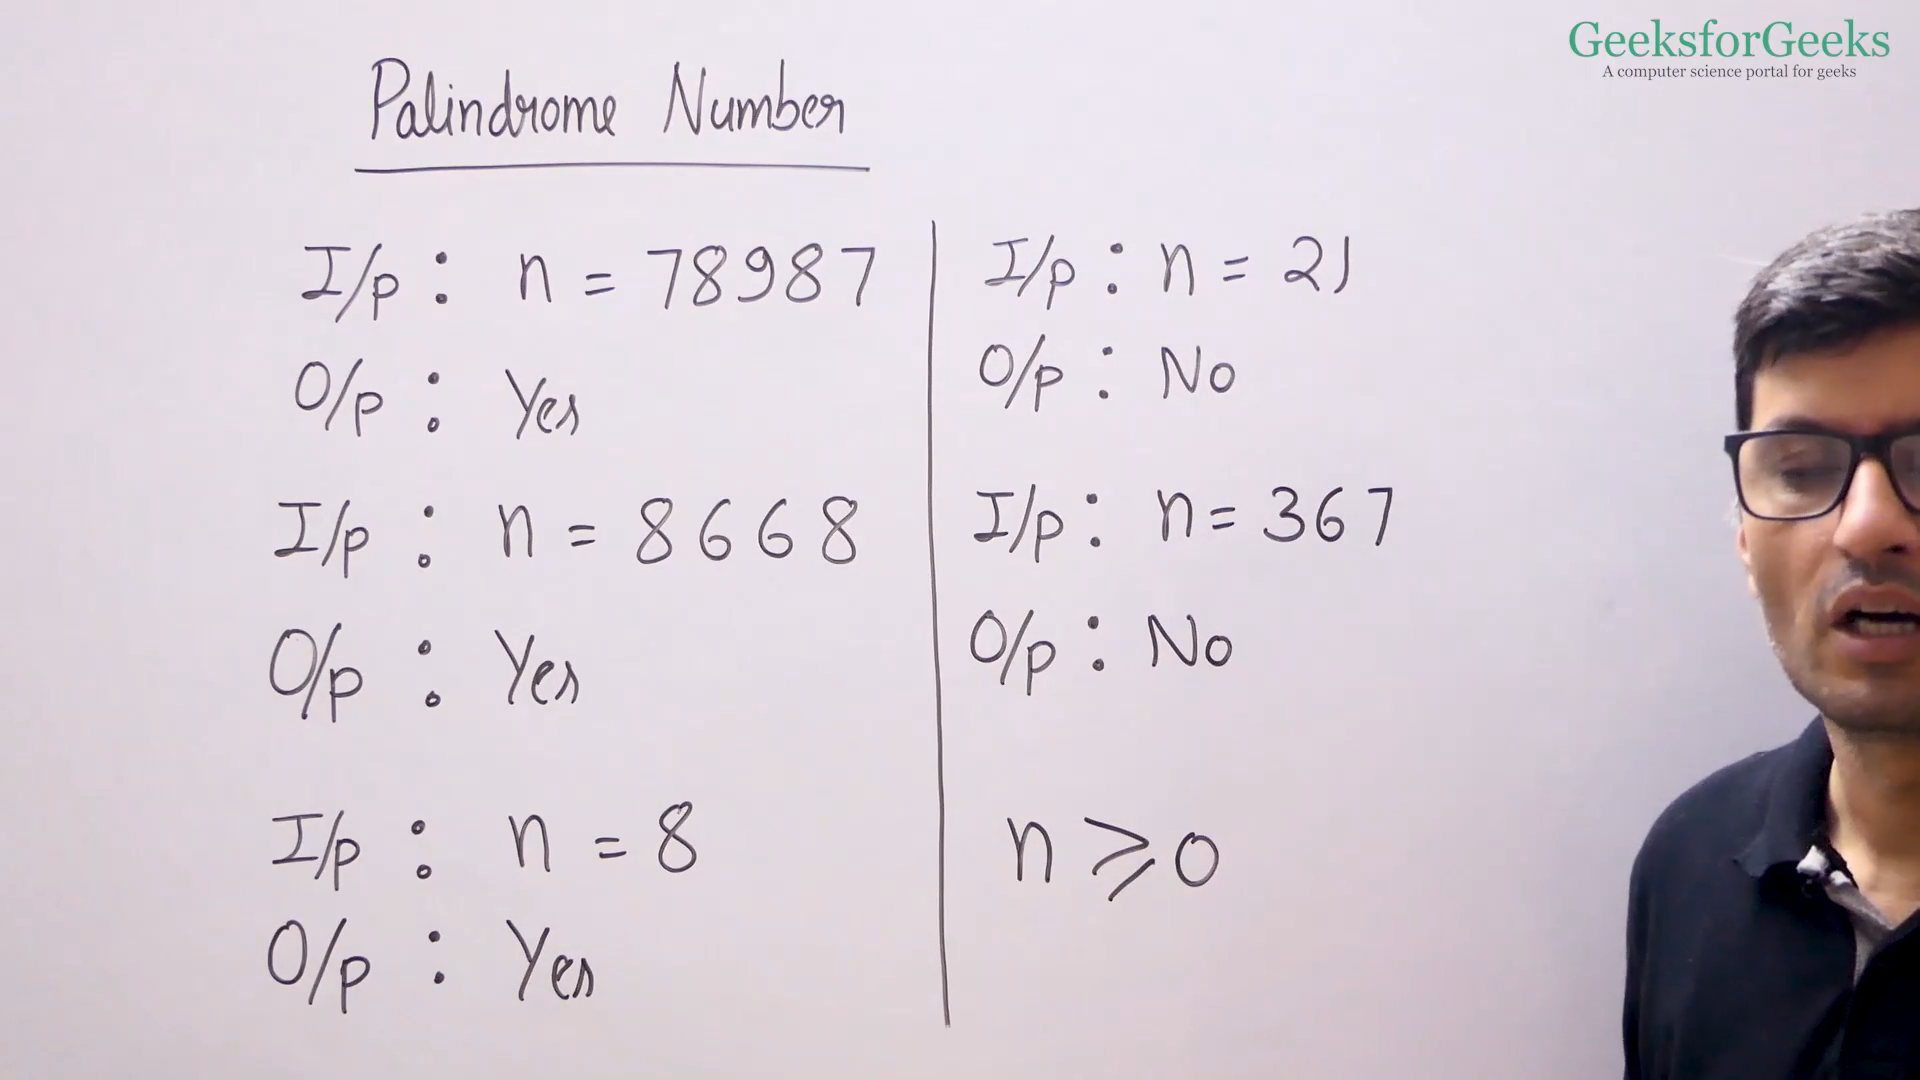 GeeksforGeeks
A computer science portal for geeks
Palindrome Number
I/p : n = 78987
O/p : Yes
I/p : n = 8668
O/p : Yes
I/p : n = 8
O/p : Yes
I/p : n = 21
O/p : No
I/p : n = 367
O/p : No
n ⩾ 0